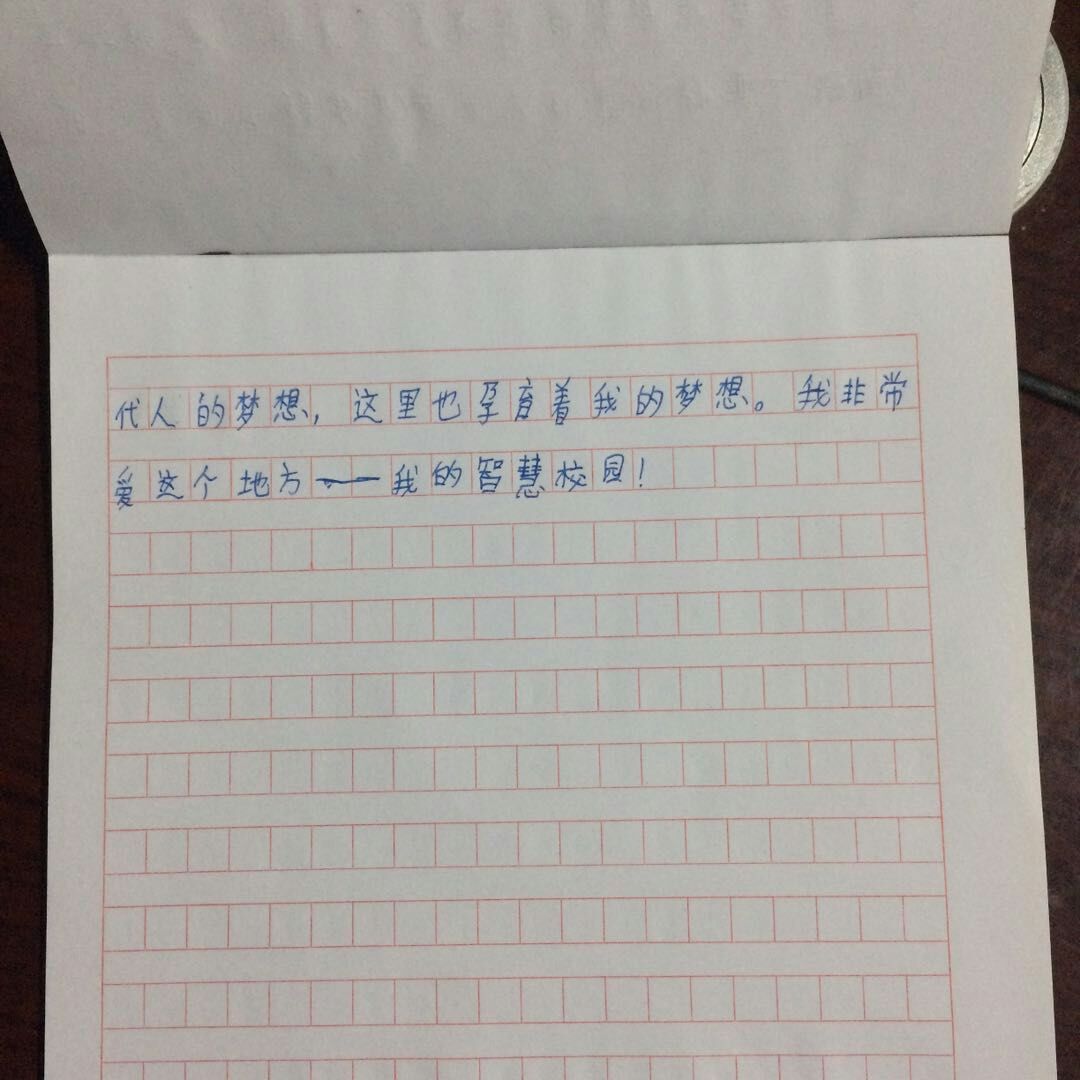 代人的梦想，这里也孕育着我的梦想。我非常
爱这个地方——我的智慧校园！